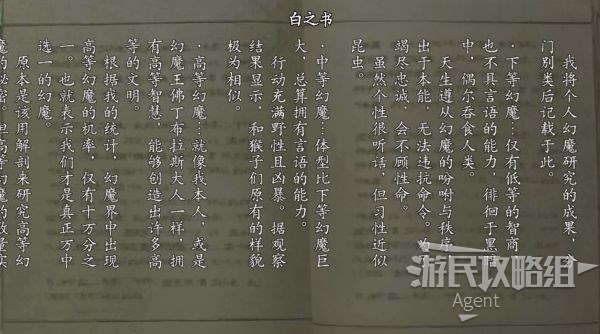 白之书
我将个人幻魔研究的成果，分
门别类后记载于此。
·下等幻魔…仅有低等的智商，
也不具言语的能力，徘徊于黑暗
中，偶尔吞食人类。
天生遵从幻魔的吩咐与秩序，
出于本能，无法违抗命令。为了
竭尽忠诚，会不顾性命。
虽然个性很听话，但习性近似
昆虫。
·中等幻魔…体型比下等幻魔巨
大，总算拥有言语的能力。
行动充满野性且凶暴。据观察
结果显示，和猴子们原有的样貌
极为相似。
·高等幻魔…就像我本人，或是
幻魔王佛丁布拉斯大人一样，拥
有高等智慧，能够创造出许多高
等的文明。
根据我的统计，幻魔界中出现
高等幻魔的机率，仅有十万分之
一。也就表示我们才是真正万中
选一的幻魔。
原本是该用解剖来研究高等幻
魔的秘密。但高等幻魔的数量实
游民攻略组
Agent